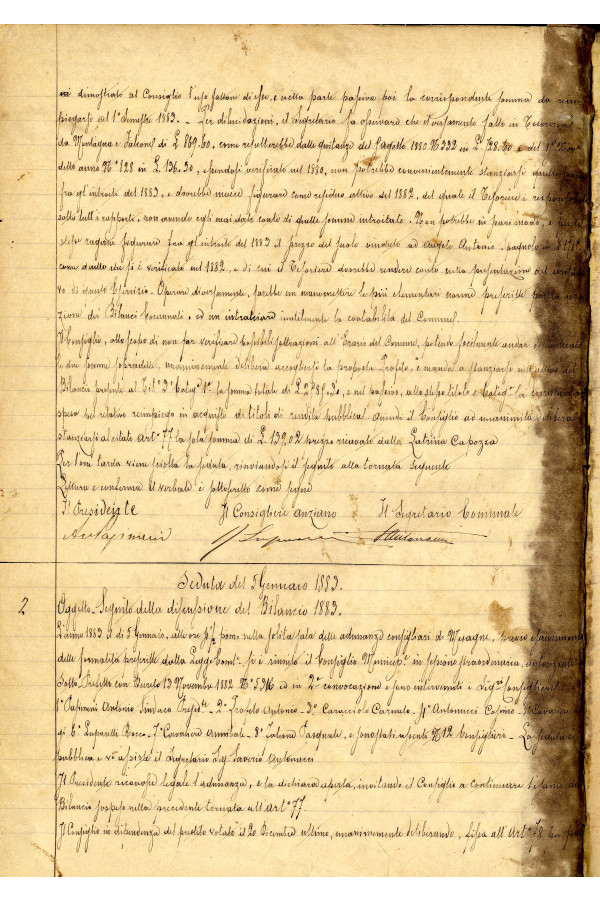 dimostrato al Consiglio l'uso fattone di esse, e nella parte passiva poi la corrispondente somma da reim
piegarsi nel 1° Semestre 1883. - Per dilucidazioni, il Segretario fa osservare che il versamento fatto in Tesoreria
da Montagna e Falcone di L. 869.60, come resulterebbe dalle quitanze del 1 agosto 1880 N° 332 in L. 728.30 e del
detto anno N° 128 in L. 136.30, essendosi verificato nel 1880, non potrebbe convenientemente stanziarsi
fra gl'introiti del 1883, e dovrebbe invece figurare come residuo attivo del 1882, del quale il Tesoriere è
sotto tutt'i rapporti, non avendo egli mai dato conto di quelle somme introitate. Non potrebbe in pari modo, e
stesse ragione figurare fra gl'introiti del 1883 il prezzo del suolo venduto ad Angelo Antonio
come quello che si è verificato nel 1882, e di cui il Tesoriere dovrebbe rendere conto nella presentazione del
vo di questo Esercizio. Operare diversamente, sarebbe un manomettere le più elementari norme prescritte per la
zione dei Bilanci Comunali, ed un intralciare inutilmente la contabilità del Comune.
Il Consiglio, allo scopo di non far verificare possibili sottrazioni all'Erario del Comune, potendo facilmente andar
le due somme sopradette, unanimemente delibera accogliersi la proposta Profilo, e manda a stanziarsi nell'attivo del
Bilancio presente al Tit° 3° Categ° 1ª la somma totale di e nel passivo, allo stesso titolo e Categ° la
spesa pel relativo reimpiego in acquisto di titoli di rendita pubblica; quindi il Consiglio ad unanimità delibera
stanziarsi al citato art° 77 la sola somma di L. 139,02 prezzo ricavato dalla Latrina Capozza
Per l'ora tarda viene sciolta la seduta, rinviandosi il seguito alla tornata seguente
Lettura e conferma il verbale è sottoscritto come segue
Il Presidente Il Consigliere anziano Il Segretario Comunale
Seduta del 5 Gennaro 1883.
2
Oggetto - Seguito della discussione del Bilancio 1883.
L'anno 1883 il dì 5 Gennaio, alle ore pom: nella solita sala delle adunanze consigliari di Mesagne, previo
delle formalità prescritte dalla Legge Com.le si è riunito il Consiglio Municip.le in sessione straordinaria, autorizzata
Sotto-Prefetto con Decreto 13 Novembre 1882 N° 5316 ed in 2ª convocazione e sono intervenuti i Sig.ri Consiglieri
1° Antonio Sindaco Presid.te - 2° Profilo Antonio - 3° Caracciolo Carmelo - 4° Antonucci Cosimo - 5°
6° Luparelli Rocco - 7° Cavaliere Annibale - 8° Falcone Pasquale, e sono stati assenti N° 12 Consiglieri. La seduta è
pubblica e vi assiste il Segretario Sig. Saverio Antonucci
Il Presidente riconosce legale l'adunanza, e la dichiara aperta, invitando il Consiglio a continuare l'esame del
Bilancio sospeso nella precedente tornata all'art° 77.
Il Consiglio in dipendenza del prestito votato il 20 Dicembre ultimo, unanimemente deliberando, fissa all'Art° 78